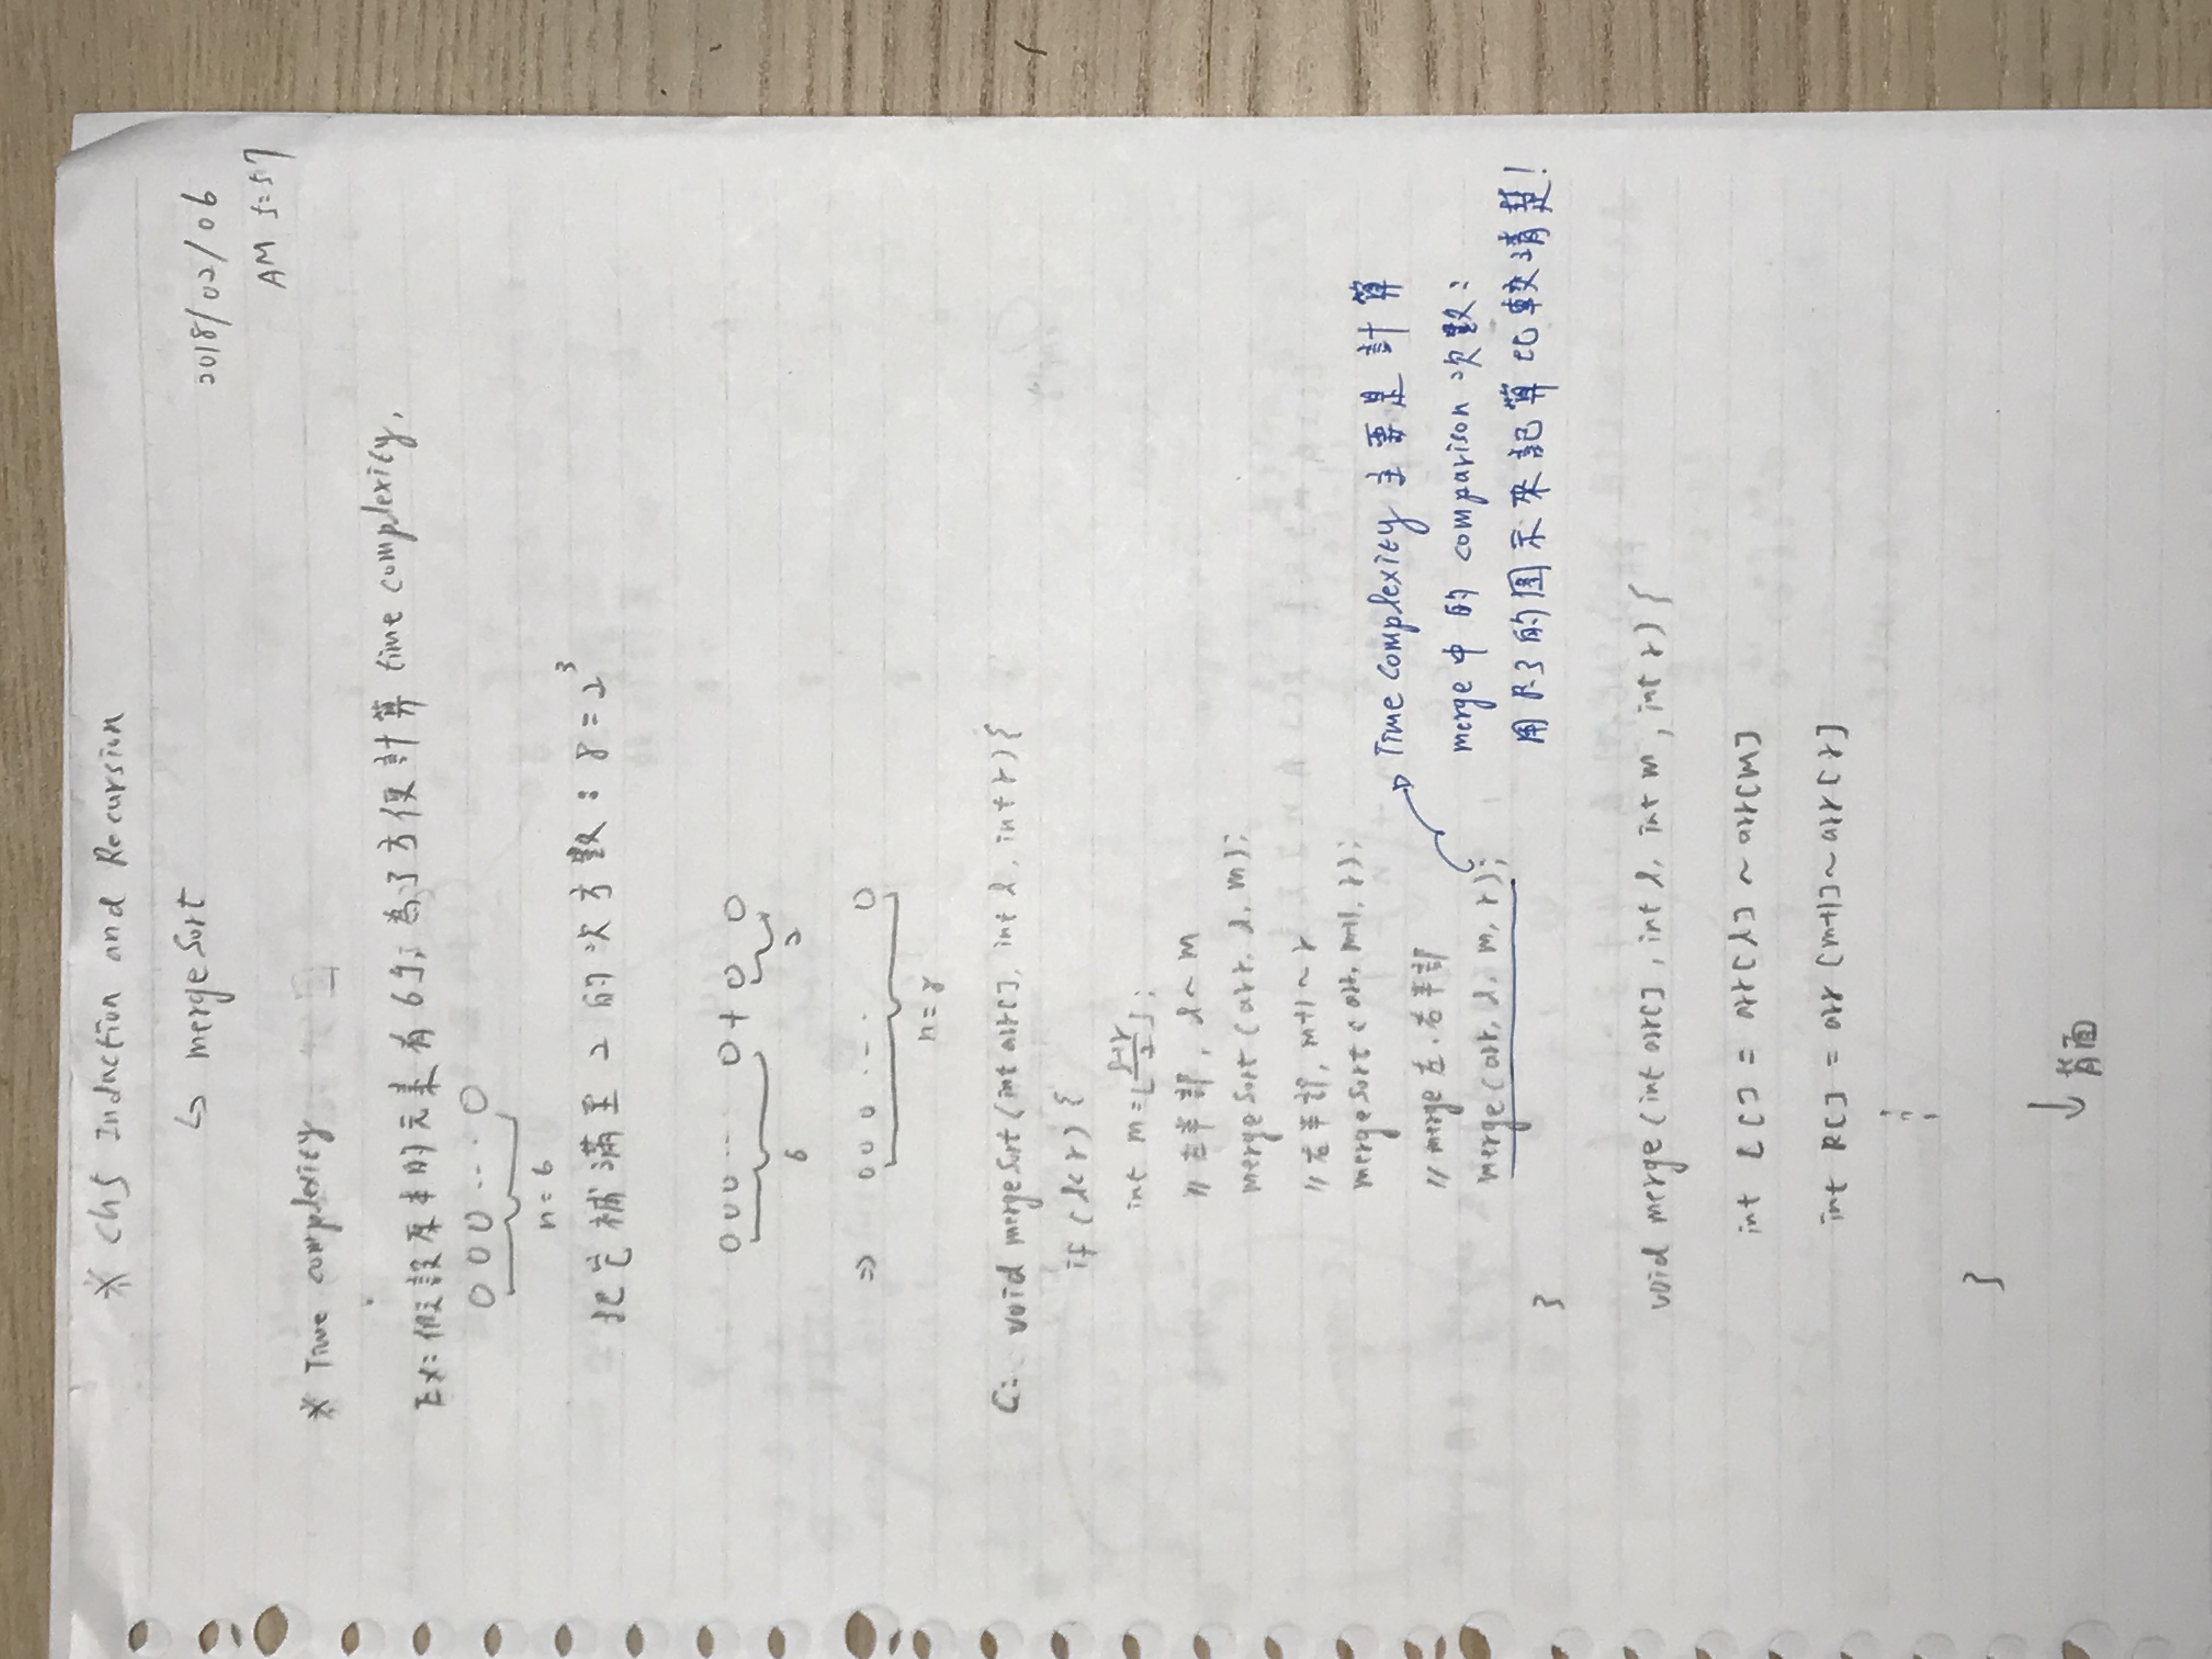 * Ch5 Induction and Recursion
↳ mergeSort
2018/02/06
AM 5:57
* Time complexity
Ex: 假設原本的元素有6個,為了方便計算 time complexity,
000...0
n=6
把它補滿至 2 的次方數:8=2³
000... 0+0 0
6 2
⇒ 000... 0
n=8
C: void mergeSort(int arr[], int l, int r){
if (l<r) {
int m=⌊(l+r)/2⌋;
// 左半部, l~m
mergeSort(arr, l, m);
// 右半部, m+1~r
mergeSort(arr, m+1, r);
// merge 左.右半部
merge(arr, l, m, r);
Time complexity 主要是計算
merge 中的 comparison 次數:
用 P.3 的圖示來記算比較清楚!
}
void merge(int arr[], int l, int m, int r){
int L[] = arr[l]~arr[m]
int R[] = arr[m+1]~arr[r]
⋮
}
↓背面